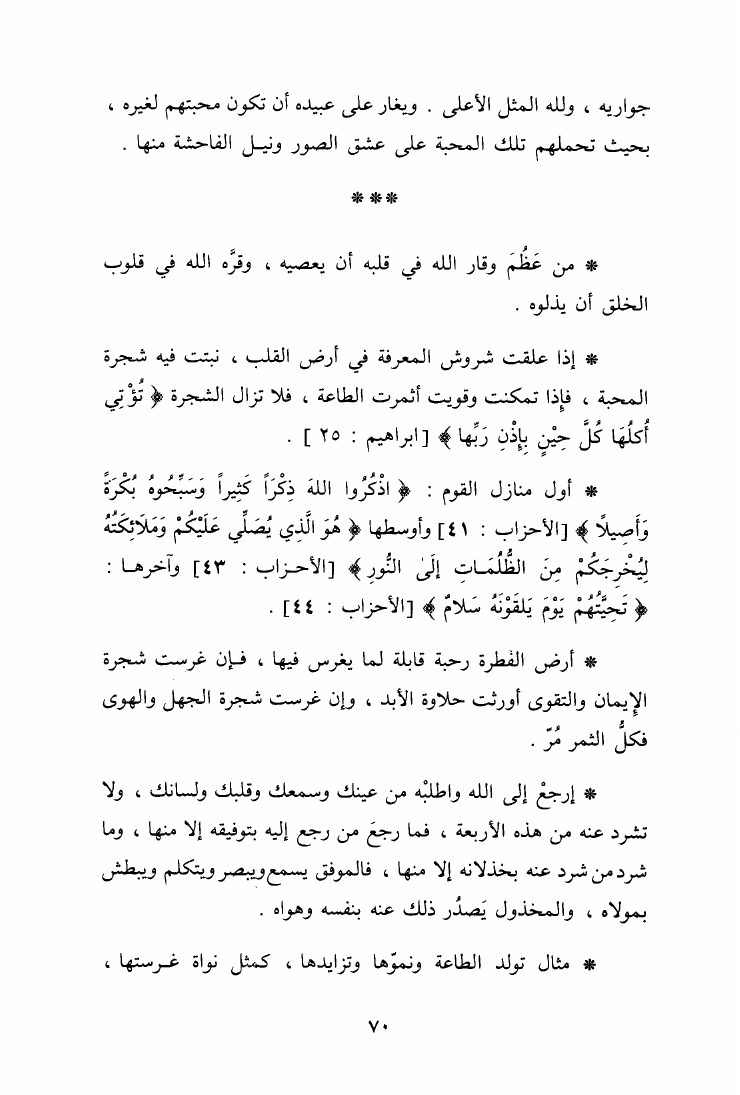 جواريه ، ولله المثل الأعلى . ويغار على عبيده أن تكون محبتهم لغيره ،
بحيث تحملهم تلك المحبة على عشق الصور ونيـل الفاحشة منها .
***
* من عَظُمَ وقار الله في قلبه أن يعصيه ، وقرَّه الله في قلوب
الخلق أن يذلوه .
* إذا علقت شروش المعرفة في أرض القلب ، نبتت فيه شجرة
المحبة ، فإذا تمكنت وقويت أثمرت الطاعة ، فلا تزال الشجرة ﴿ تُؤْتِي
أُكلُهَا كُلَّ حِيْنٍ بِإِذْنِ رَبِّها ﴾ [ ابراهيم : ٢٥ ] .
* أول منازل القوم : ﴿ اذْكُرُوا اللهَ ذِكْرَاً كَثِيراً وَسَبِّحُوهُ بُكْرَةً
وَأَصِيلاً ﴾ [الأحزاب : ٤١] وأوسطها ﴿ هُوَ الَّذِي يُصَلِّي عَلَيْكُمْ وَمَلَائِكَتُهُ
لِيُخْرِجَكُمْ مِنَ الظُّلُمَـاتِ إِلَى النُّورِ ﴾ [الأحـزاب : ٤٣] وآخرهـا :
﴿ تَحِيَّتُهُمْ يَوْمَ يَلقَوْنَهُ سَلامٌ ﴾ [الأحزاب : ٤٤] .
* أرض الفطرة رحبة قابلة لما يغرس فيها ، فـإن غرست شجرة
الإيمان والتقوى أورثت حلاوة الأبد ، وإن غرست شجرة الجهل والهوى
فكلُّ الثمر مُرّ .
* إرجعْ إلى الله واطلبْه من عينك وسمعك وقلبك ولسانك ، ولا
تشرد عنه من هذه الأربعة ، فما رجعَ من رجع إليه بتوفيقه إلا منها ، وما
شرد من شرد عنه بخذلانه إلا منها ، فالموفق يسمع ويبصر ويتكلم ويبطش
بمولاه ، والمخذول يَصدُر ذلك عنه بنفسه وهواه .
* مثال تولد الطاعة ونموّها وتزايدها ، كمثل نواة غـرستها ،
٧٠